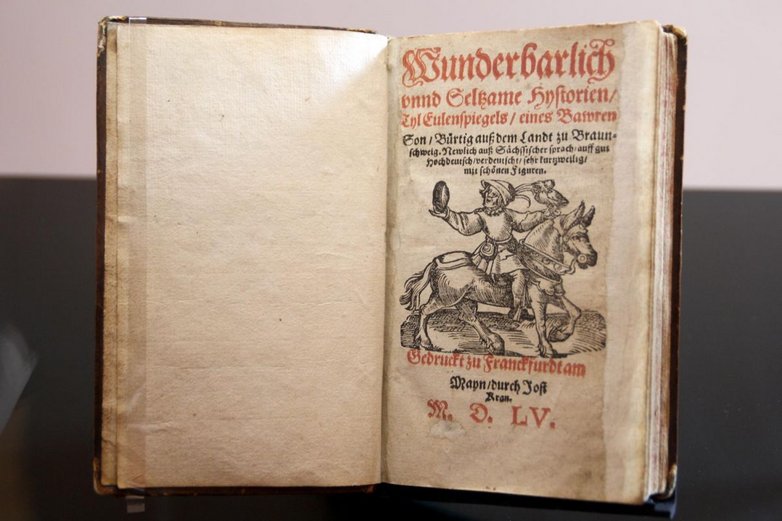 Wunderbarlich
vnnd Seltzame Hystorien/
Tyl Eulenspiegels/ eines Bawren
Son/ Bürtig auß dem Landt zu Braun-
schweig. Newlich auß Sächsischer sprach/ auff gut
Hochdeutsch/ verdeutscht/ sehr kurtzweilig/
mit schönen Figuren.
Gedruckt zu Franckfurdt am
Mayn/ durch Jost
Kran.
M. D. LV.